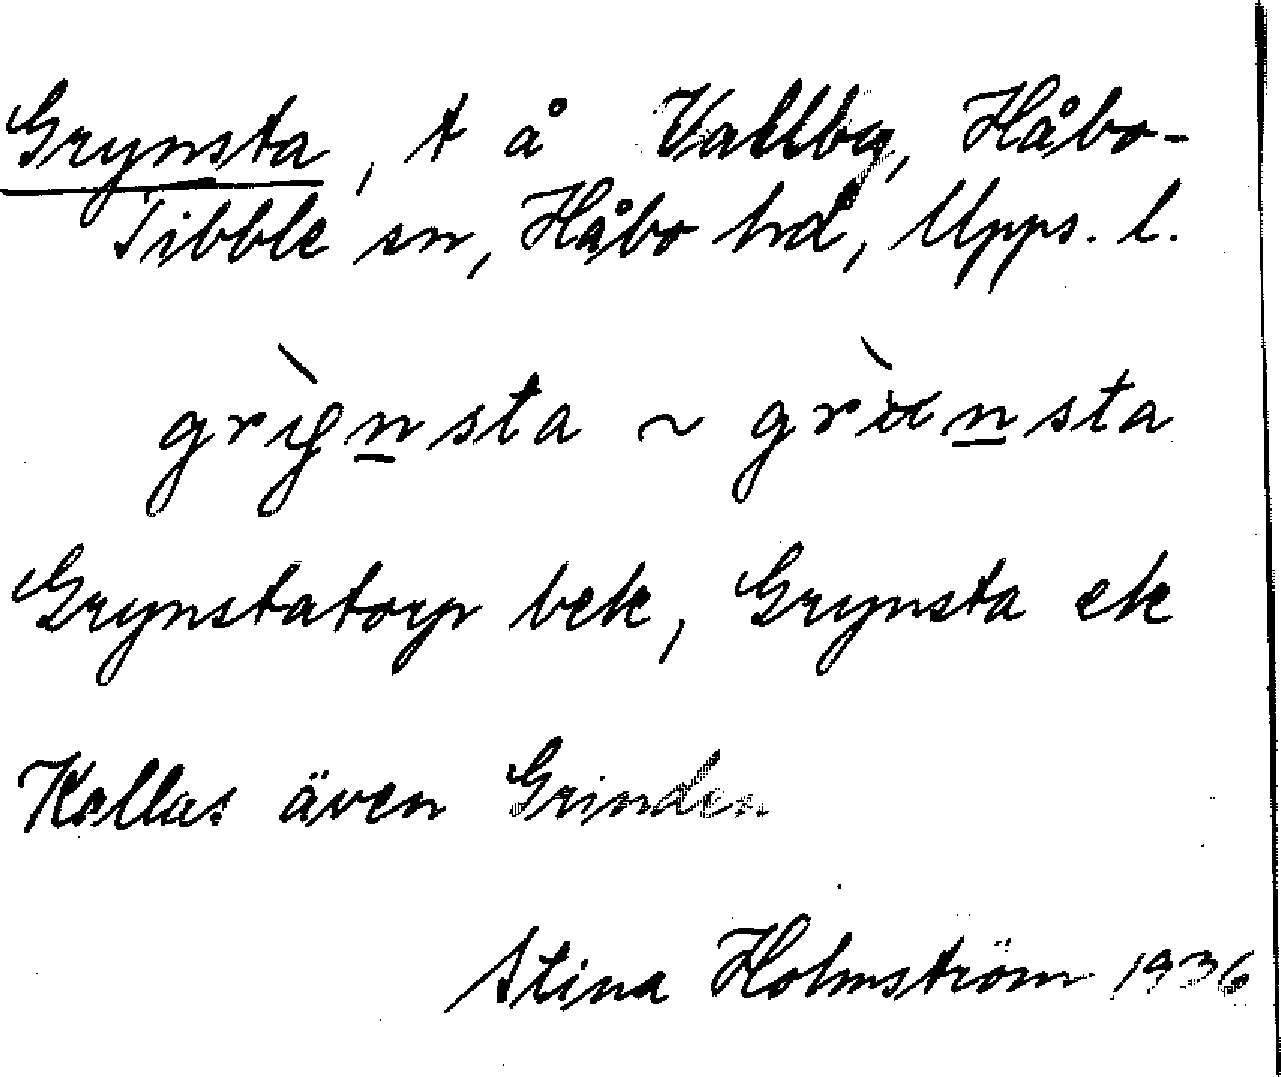 Grynsta, t å Vallby, Håbo-
Tibble sn, Håbo hd, Upps. l.
~
Grynstatorp bek, Grynsta ek
Kallas även Grinden
Stina Holmström 1936